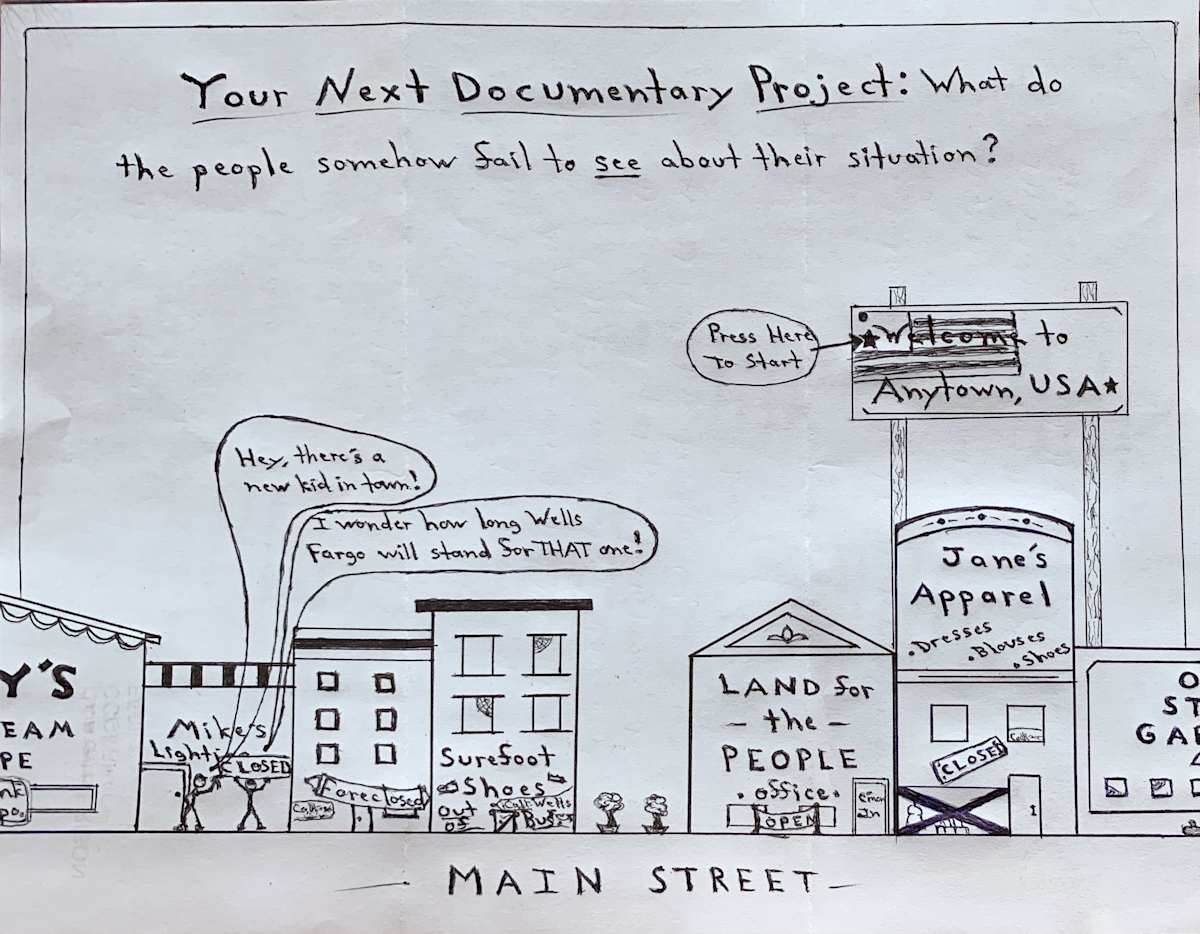 Your Next Documentary Project: What do
the people somehow fail to see about their situation?
Press Here
To Start
Welcome to
Anytown, USA
Hey, there's a
new kid in town!
I wonder how long Wells
Fargo will stand for THAT one!
Y'S
EAM
PE
Mike's
CLOSED
Foreclosed
Surefoot
Shoes
Out
of
Call Wells
LAND for
- the -
PEOPLE
• office •
OPEN
C'mon
In
Jane's
Apparel
• Dresses
• Blouses
• Shoes
CLOSED
O
ST
GA
MAIN STREET